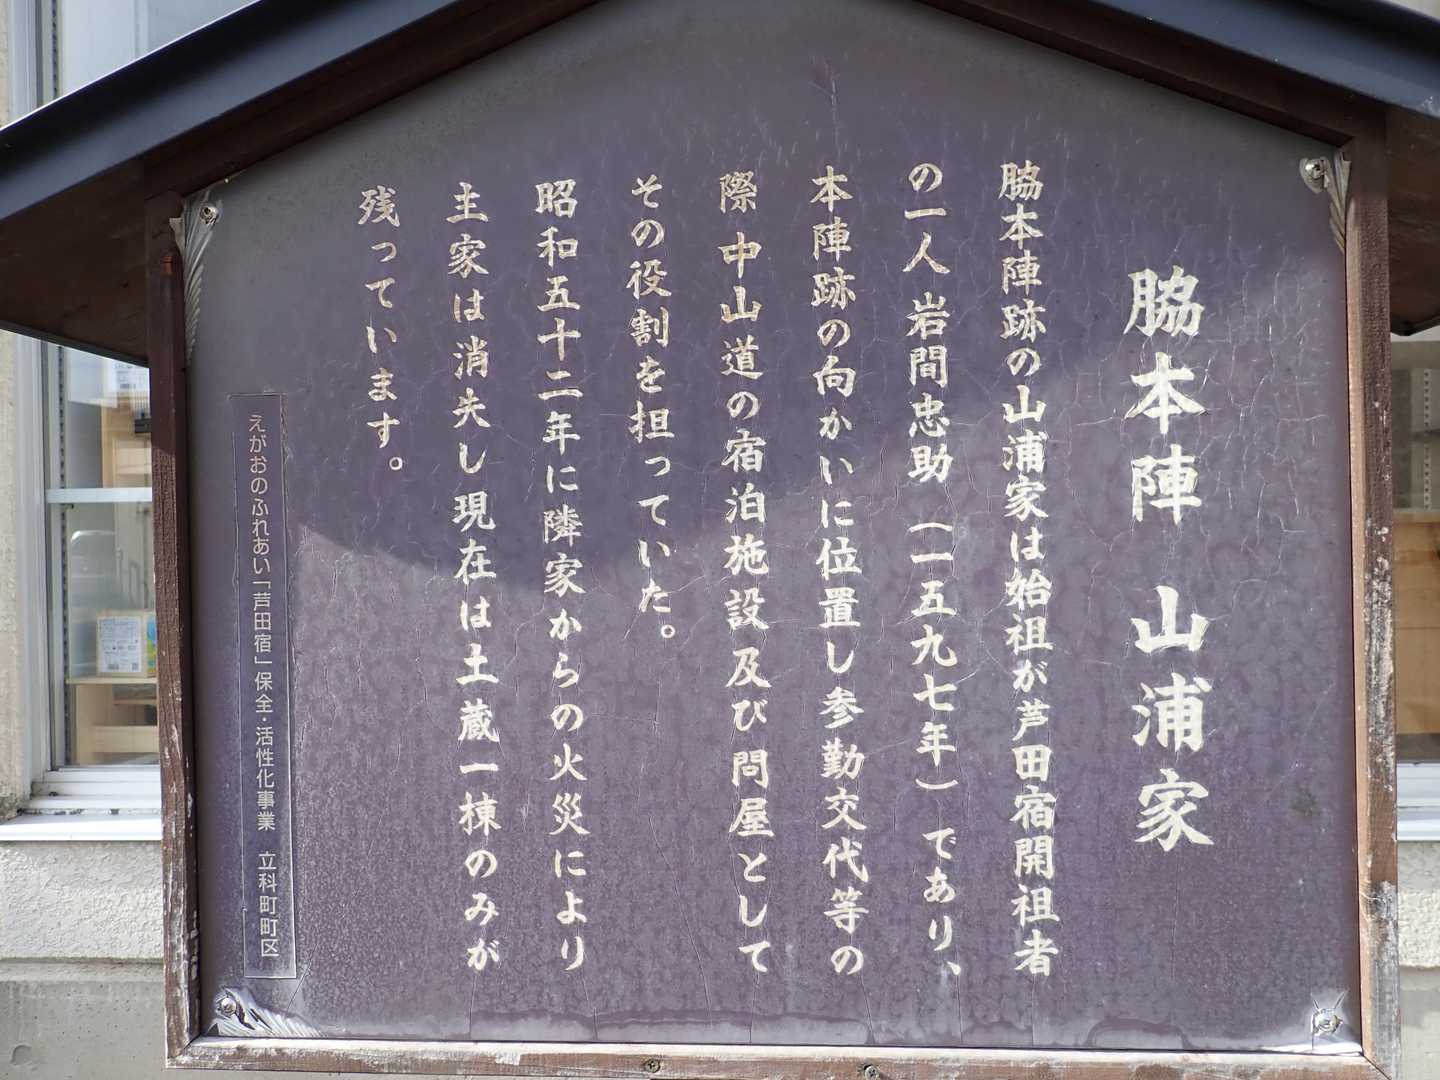 脇本陣　山浦家
脇本陣跡の山浦家は始祖が芦田宿開祖者
の一人 岩間忠助（一五九七年）であり、
本陣跡の向かいに位置し参勤交代等の
際 中山道の宿泊施設及び問屋として
その役割を担っていた。
昭和五十二年に隣家からの火災により
主家は消失し現在は土蔵一棟のみが
残っています。
えがおのふれあい「芦田宿」保全・活性化事業　立科町町区